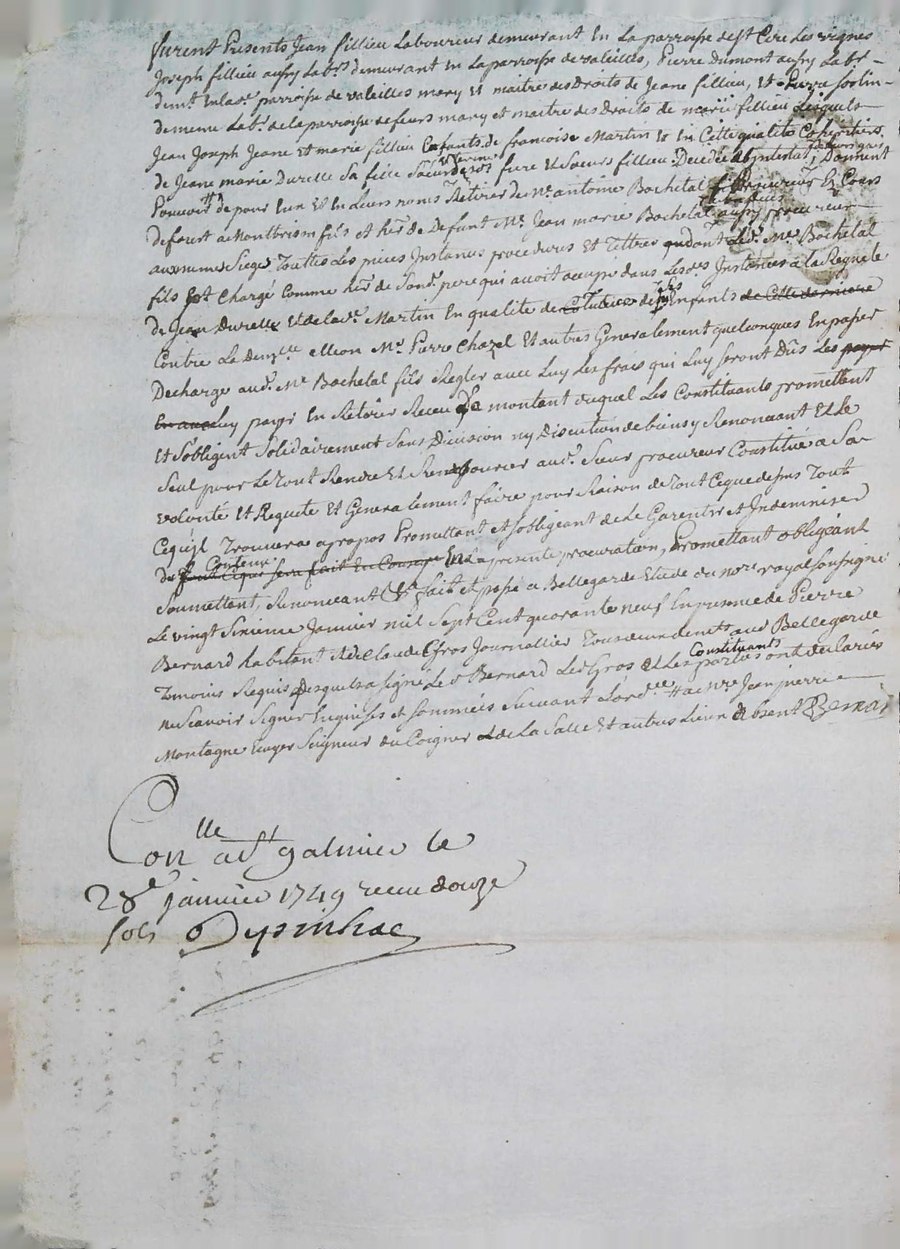 furent Presents Jean fillieu Laboureur demeurant En La parroisse de st Cire Les vignes
Joseph fillieu aussy Labr. demeurant En La parroisse de valeilles, Pierre Dumont aussy Labr
demt. En lad. parroisse de valeilles mary Et maitre des Droits de Jeane fillieu, Et Pierre
de meme Labr. de la parroisse de feurs mary et maitre des Droits de marie fillieu Lesquels
Jean Joseph Jeane Et marie fillieu Enfants de francoise Martin Et En Cette qualité Coheritiers
de Jeane marie Durelle Sa fille Soeur frere Et Soeurs fillieu Decedée abintestat, Donnent
Pouvoir de pour Eux Et En Leurs noms Retirer de Me. antoine Bochetal Procureur En Cours
de fourt a Montbrison fils et her. de Defunt Me. Jean marie Bochetal aussy procureur
aux mumes Sieges Touttes Les pieces Instances procedures Et Tittres dont Led. Me. Bochetal
fils Est Chargé Comme her. de Sond. pere qui avoit occupé dans Lesd. Instances a la Requete
de Jean Durelle Et de lad. Martin En qualité de Enfants
Contre Le Me. Pierre Chazel Et autres Generalement quelconques En passer
Decharge aud. Me. Bochetal fils Regler avec Luy Les frais qui Luy seront Dûs Les
payer En Retirer Receu montant duquel Les Constituants promettent
Et Sobligent Solidairement Sans Division ny Discution de biens y Renoncant Et Le
Seul pour Le Tout Rendre Et Rembourcer aud. Sieur procureur Constitué a Sa
volonté Et Requete Et Generalement faire pour Raison de Tout Ceque dessus Tout
Cequil Trouvera apropos Promettant et sobligeant de Le Garentir et Indemniser
du Contenu En La presente procuration, Promettant obligeant
Soumettant, Renonceant Et fait et passé a Bellegarde Etude du nore. royal Soussigné
Le vingt Sixieme Janvier mil Sept Cent quarante neuf En presence de Pierre
Bernard habitant Et Claude Gros Journallier Tous deux demts. aud Bellegarde
Temoins Requis Desquels a signé Le d Bernard Led. Gros Et Les parties Constituants ont declarées
ne Scavoir Signer Enquises et sommées Suivant Lordce. Jean pierre
Montagne Ecuyer Seigneur du Poigner Et de La Salle Et autres Lieux absent Bernard
Conlle a st galmier le
28e janvier 1749 receu douze
sols Despinhac